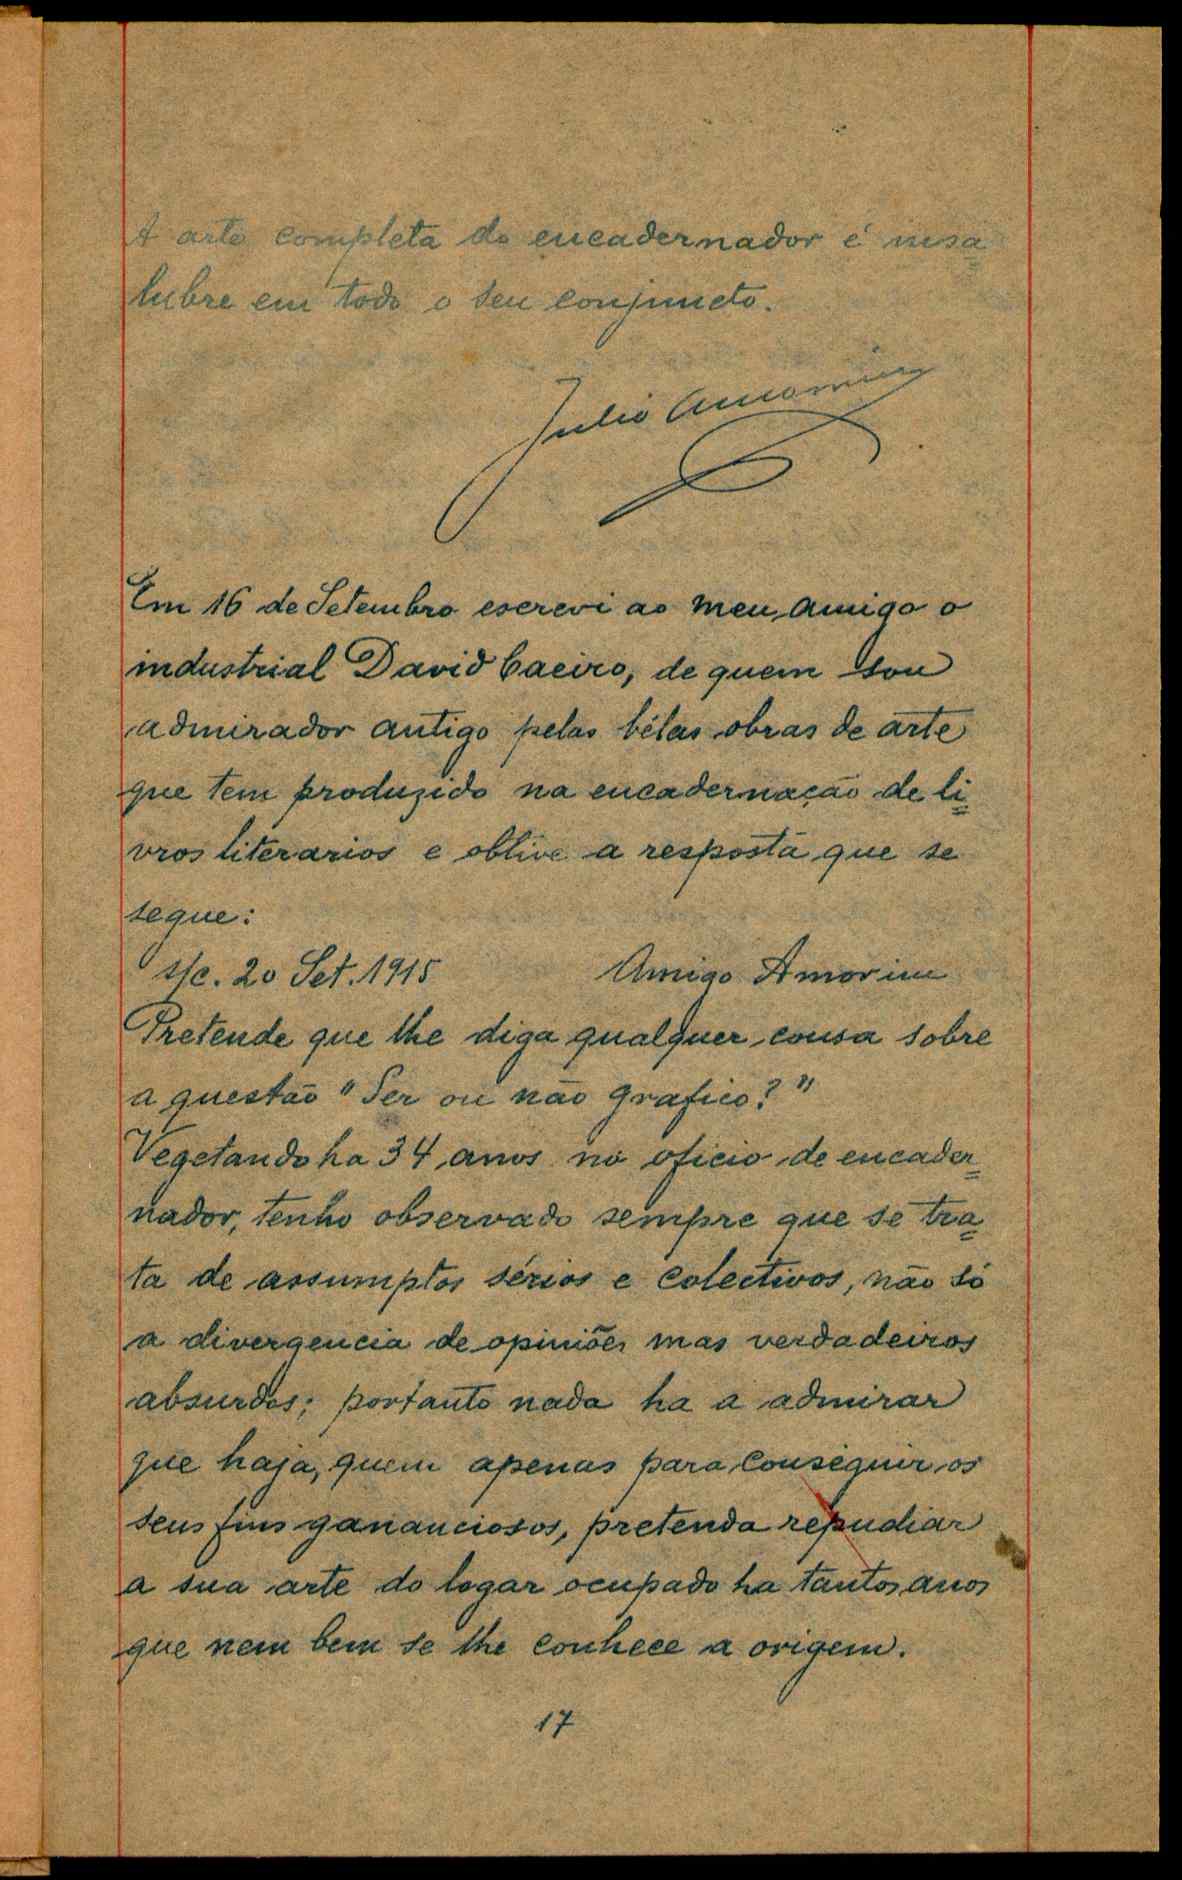 A arte completa do encadernador é insa=
lubre em todo o seu conjuncto.
Julio Amorim
Em 16 de Setembro escrevi ao meu amigo o
industrial David Caeiro, de quem sou
admirador antigo pelas bélas obras de arte
que tem produzido na encadernação de li=
vros literarios e obtive a resposta que se
segue:
s/c. 20 Set. 1915 Amigo Amorim
Pretende que lhe diga qualquer cousa sobre
a questão "Ser ou não grafico?"
Vegetando ha 34 anos no oficio de encader=
nador, tenho observado sempre que se tra=
ta de assumptos sérios e colectivos, não só
a divergencia de opiniões mas verdadeiros
absurdos; portanto nada ha a admirar
que haja, quem apenas para conseguir os
seus fins gananciosos, pretenda repudiar
a sua arte do logar ocupado ha tantos anos
que nem bem se lhe conhece a origem.
17